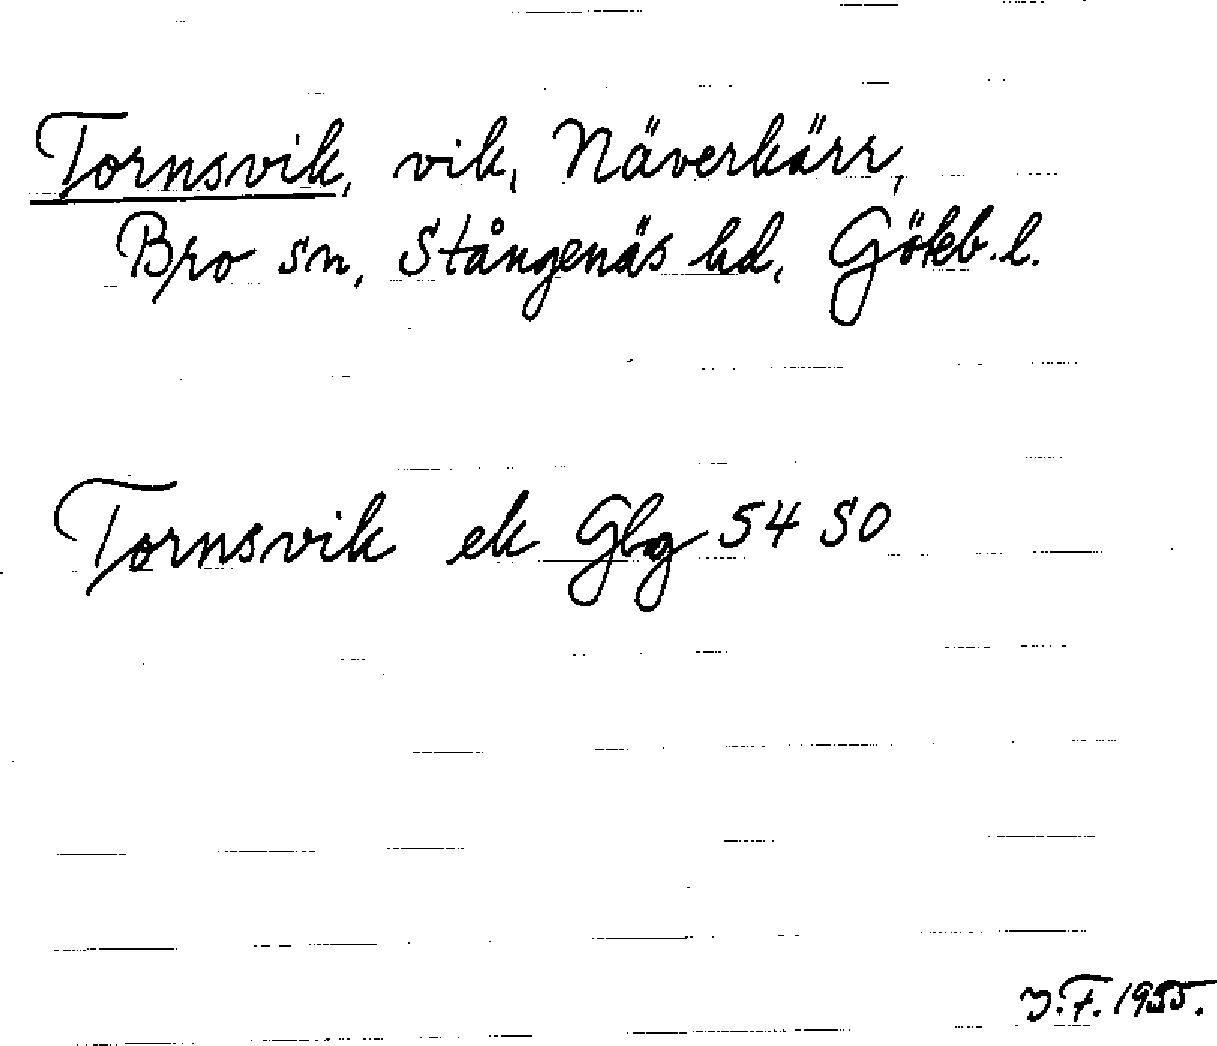 Tornsvik, vik, Näverkärr,
Bro sn, Stångenäs hd, Göteb. l.
Tornsvik ek Gbg 54 SO
J.F. 1955.